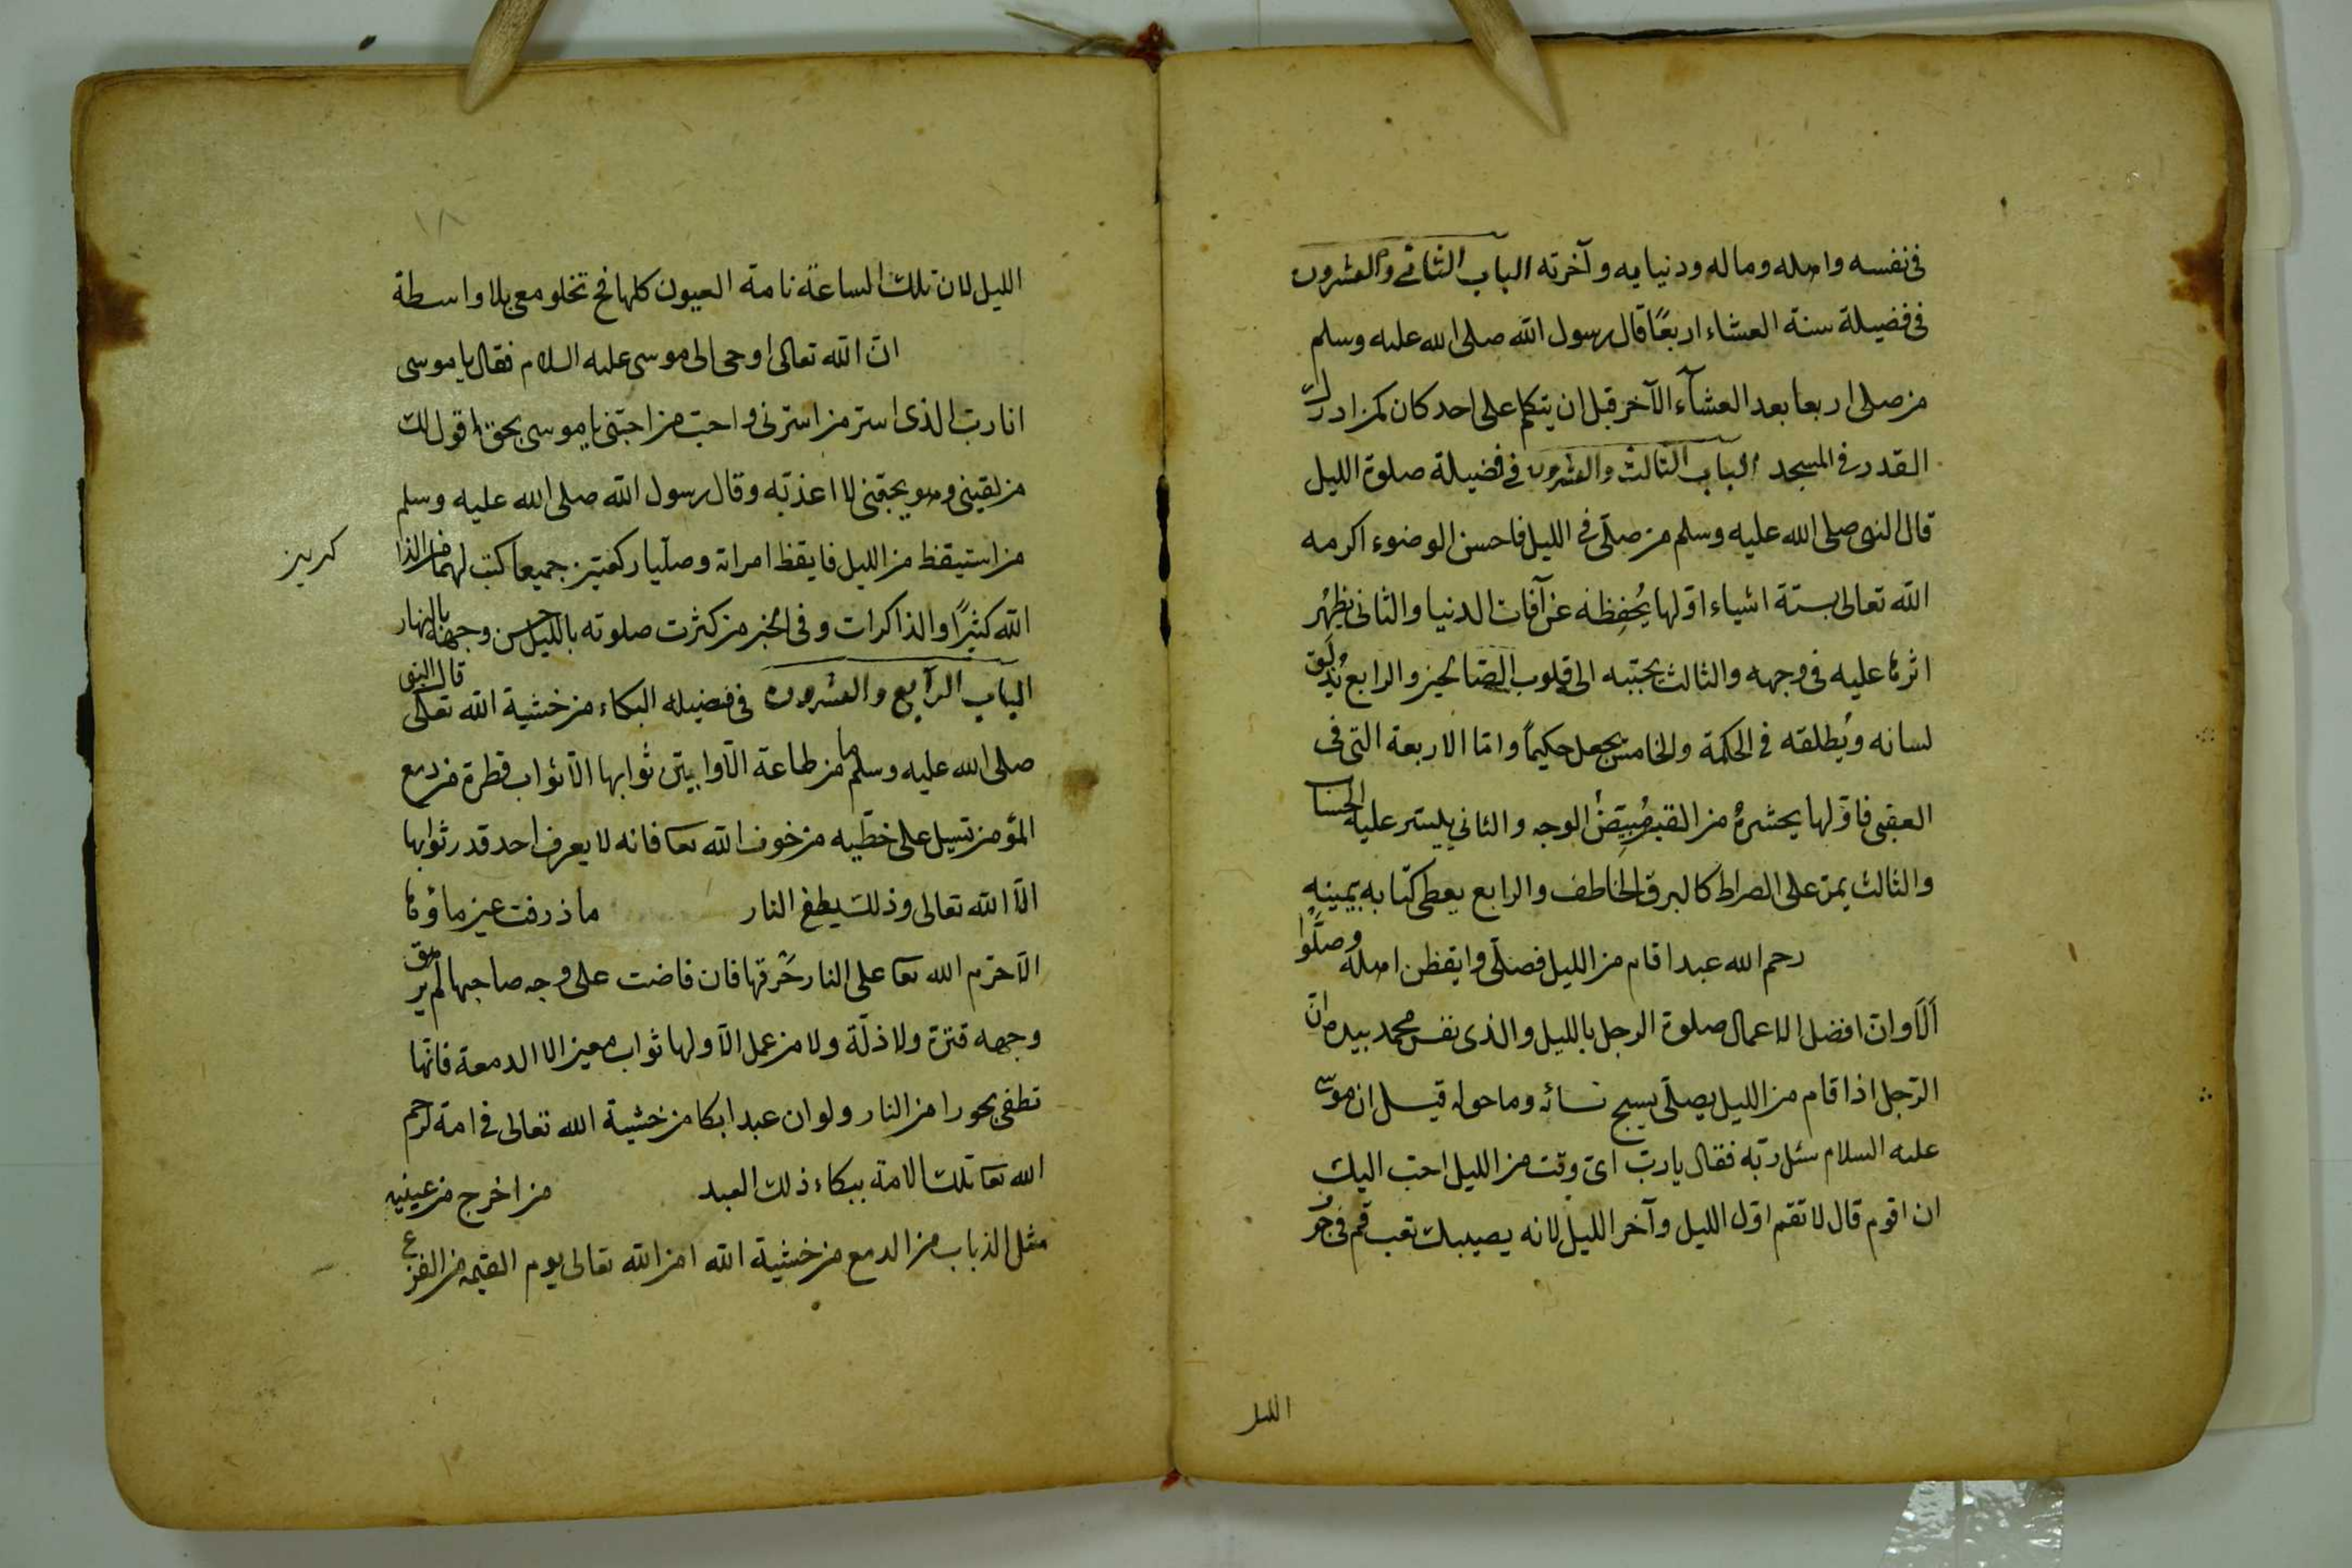 فى نفسه واهله وماله ودنيايه وآخرته الباب الثانى والعشرون
فى فضيلة سنة العشاء اربعًا قال رسول الله صلى الله عليه وسلم
من صلى اربعا بعد العشآء الآخر قبل ان يتكلم على احد كان كمن ادرك
القدر فى المسجد الباب الثالث والعشرون فى فضيلة صلوة الليل
قال النبى صلى الله عليه وسلم من صلّى فى الليل فاحسن الوضوء اكرمه
الله تعالى بستة اشياء اوّلها يُحفِظه عن آفات الدنيا والثانى يظهُر
اثرها عليه فى وجهه والثالث يحبّبه الى قلوب الصّالحين والرابع
لسانه ويُطلقه فى الحكمة والخامس يجعل حكيماً وامّا الاربعة التى فى
العقبى فاوّلها يحشرهُ من القبر مُبيَضُ الوجه والثانى ييسّر عليه الحساب
والثالث يمرّ على الصراط كالبرق الخاطف والرابع يعطى كتابه بيمينهِ
رحم الله عبدا قام من الليل فصلّى وايقظن اهله وصلَّوا
اَلَا وانّ افضل الاعمال صلوة الرجل بالليل والذى نفس محمد بيده انّ
الرّجل اذا قام من الليل يصلّى يسبح نسائه وما حوله قيل ان موسى
عليه السلام سئل ربّه فقال يا ربّ اىّ وقت من الليل احبّ اليك
ان اقوم قال لا تقم اوّل الليل وآخر الليل لانه يصيبك تعب قم فى جوف
الليل
١٨
الليل لان تلك الساعة نامة العيون كلها فح تخلو معى بلا واسطة
انّ الله تعالى اوحى الى موسى عليه السلام فقال يا موسى
انا ربّ الذى استر من استرنى واحبّ من احبّنى يا موسى بحق اقول لك
من لقينى وهو يحبّنى لا اعذبّه وقال رسول الله صلى الله عليه وسلم
من استيقظ من الليل فايقظ امراته وصلّيا ركعتين جميعا كتب لهما من الذا
كرين
الله كثيرًا والذاكرات وفى الخبر من كثرت صلوته بالليل حسن وجهه بالنهار
الباب الرّابع والعشرون فى فضيله البكاء من خشية الله تعالى قال النبى
صلى الله عليه وسلم ما من طاعة الّا وابيّن ثوابها الّا ثواب قطرة من دمع
المؤمن تسيل على خدّيه من خوف الله تعا فانه لا يعرف احد قدر ثوابها
الّا الله تعالى وذلك يطفئ النار ما ذرفت عين ماؤها
الّا حرّم الله تعا على النار حَرقها فان فاضت على وجه صاحبها لم يرهق
وجهه قترة ولا ذلّة ولا من عمل الّا ولها ثواب معين الا الدمعة فانّها
تطفى بحورا من النار ولو ان عبدا بكا من خشية الله تعالى فى امة لرحم
الله تعا تلك الامة ببكاء ذلك العبد من اخرج من عينيه
مثل الذباب من الدمع من خشية الله امن الله تعالى يوم القيمة من الفزع